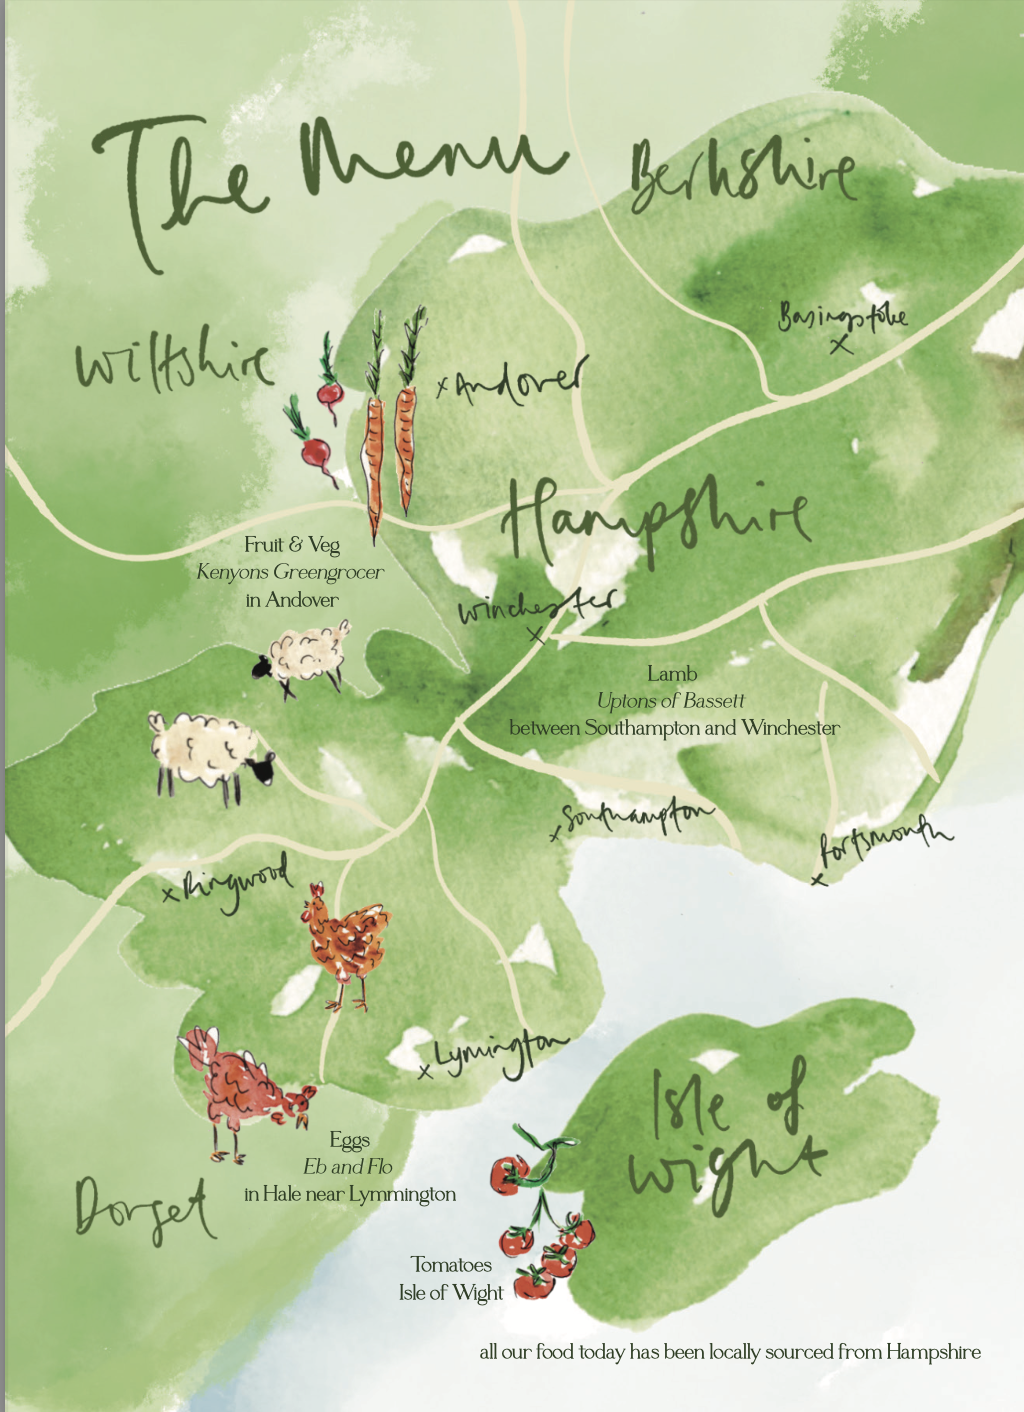 The Menu
Berkshire
Basingstoke
Wiltshire
x Andover
Hampshire
Fruit & Veg
Kenyons Greengrocer
in Andover
Winchester
Lamb
Uptons of Bassett
between Southampton and Winchester
x Southampton
Portsmouth
x Ringwood
x Lymington
Isle of
Wight
Eggs
Eb and Flo
in Hale near Lymmington
Dorset
Tomatoes
Isle of Wight
all our food today has been locally sourced from Hampshire